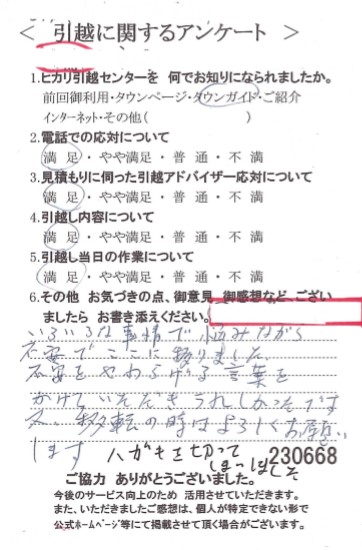 ＜ 引越に関するアンケート ＞
1.ヒカリ引越センターを 何でお知りになられましたか。
前回御利用・タウンページ・タウンガイド・ご紹介
インターネット・その他( )
2.電話での応対について
満 足・やや満足・普 通・不 満
3.見積もりに伺った引越アドバイザー応対について
満 足・やや満足・普 通・不 満
4.引越し内容について
満 足・やや満足・普 通・不 満
5.引越し当日の作業について
満 足・やや満足・普 通・不 満
6.その他 お気づきの点、御意見、御感想など、ござい
ましたら お書き添えください。
いろいろな事情で悩みながら
不安でここに移りました。
不安をやわらげる言葉を
かけていただきうれしかったです
又、移転の時はよろしくお願い
します ハガキを切って
230668
ご協力 ありがとうございました。
今後のサービス向上のため 活用させていただきます。
また、いただきましたご感想は、個人が特定できない形で
公式ホームページ等にて掲載させて頂く場合がございます。